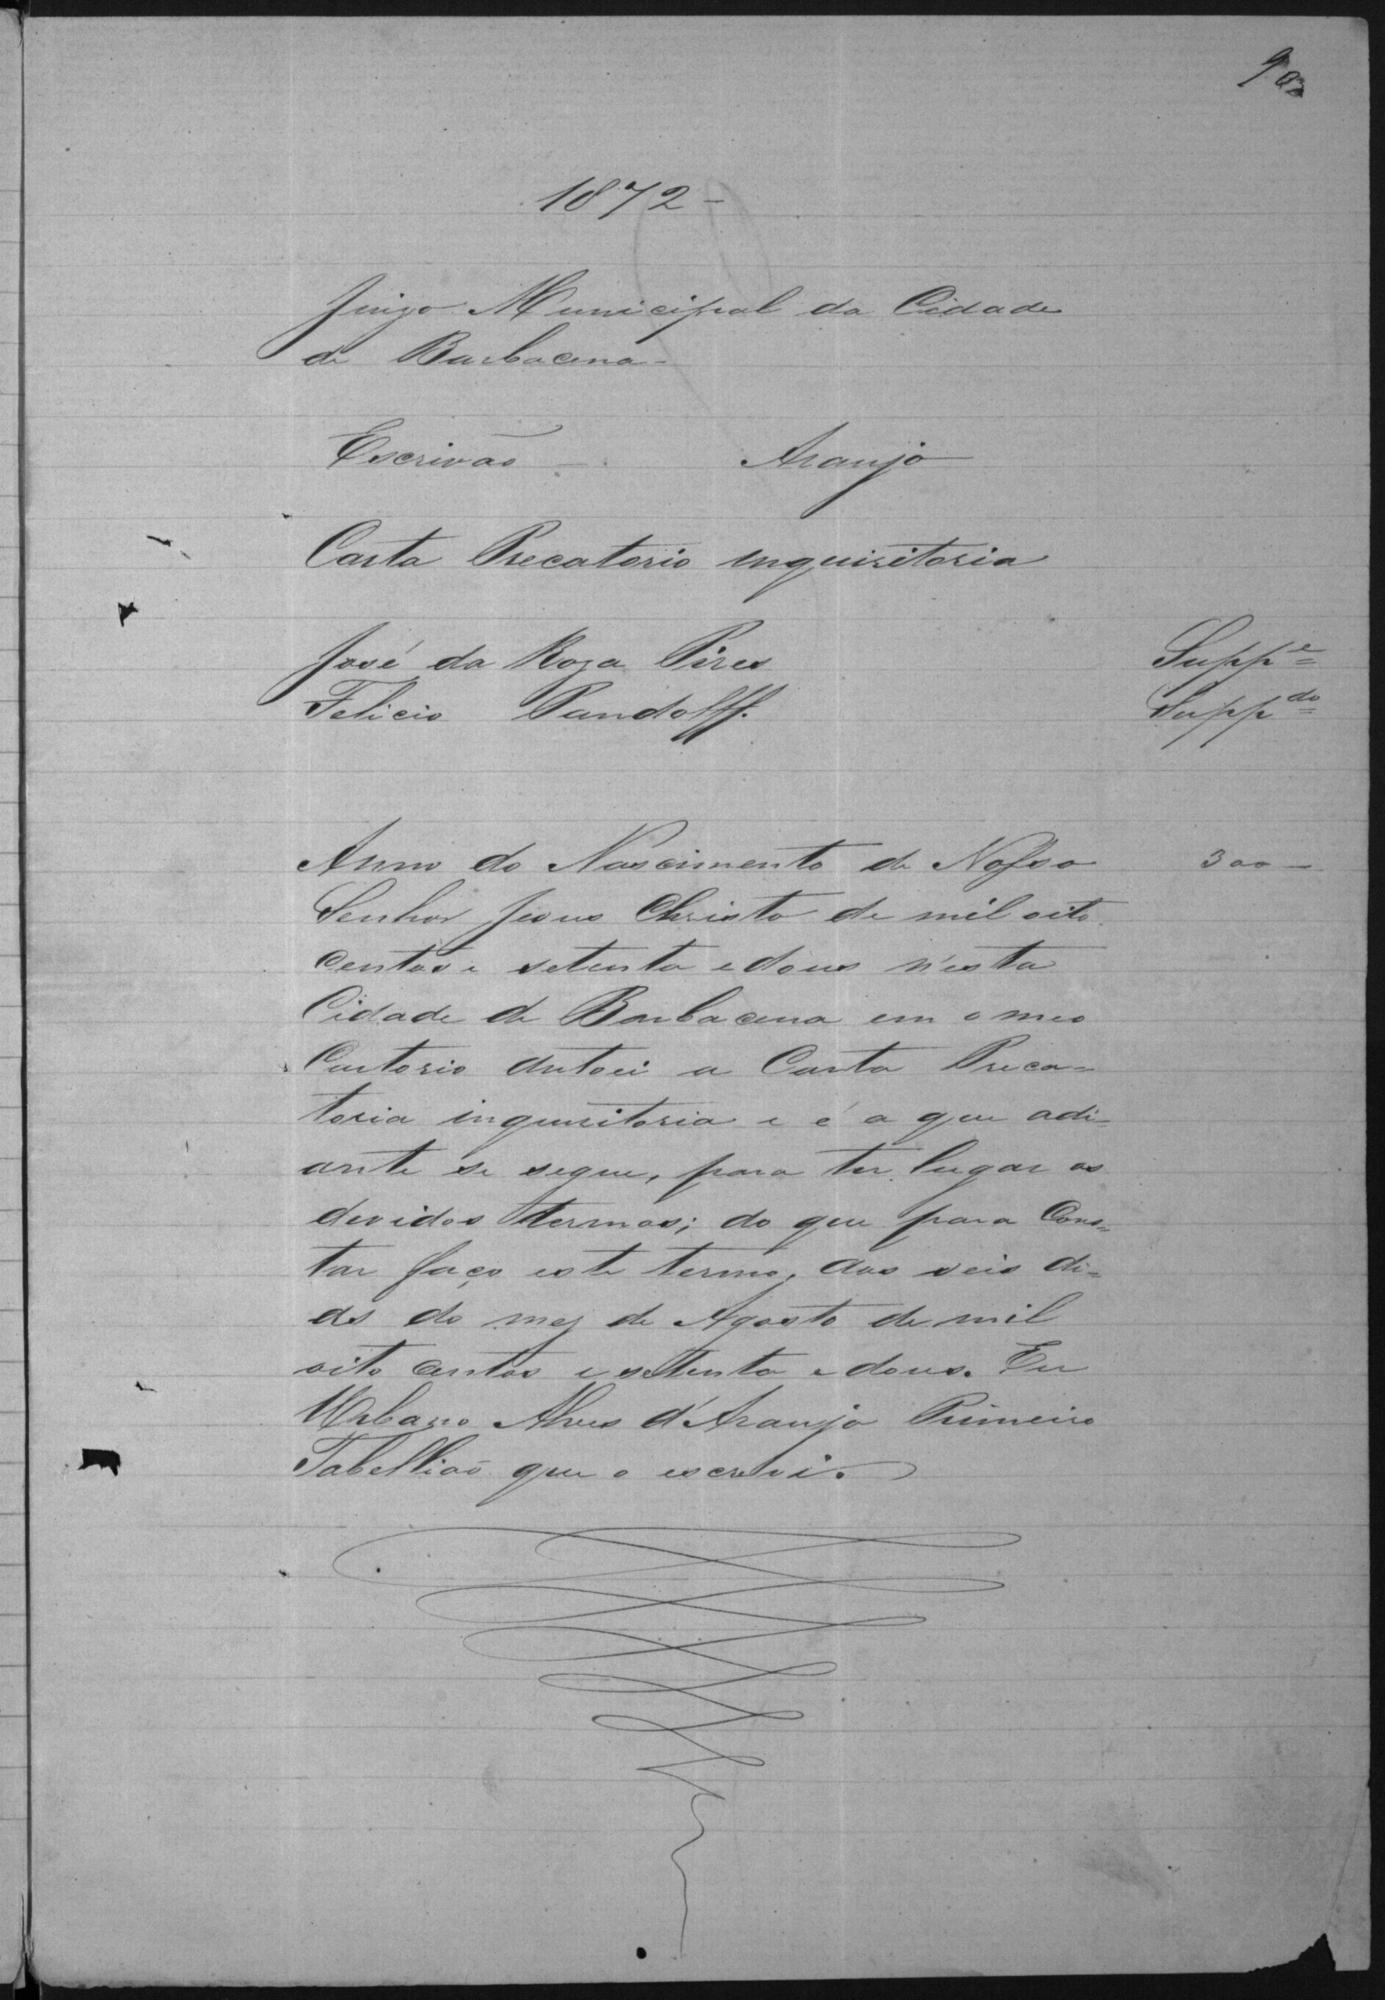 1872 -
Juizo Municipal da Cidade
de Barbacena -
Escrivão - Araujo
Carta Precatorio inquiritoria
José da Roza Pires Supp.e
Felicio Pandolff. Supp.do
Anno do Nascimento de Nosso 300 -
Senhor Jesus Christo de mil oito
centos e setenta e dous n'esta
Cidade de Barbacena em o meo
Cartorio autoei a Carta Preca=
toria inquiritoria e é a que adi=
ante se segue, para ter lugar os
devidos termos; do que para Cons=
tar faço este termo, aos seis di=
as do mez de Agosto de mil
oito centos e setenta e dous. Eu
Urbano Alves d'Araujo Primeiro
Tabellião que o escrevi.